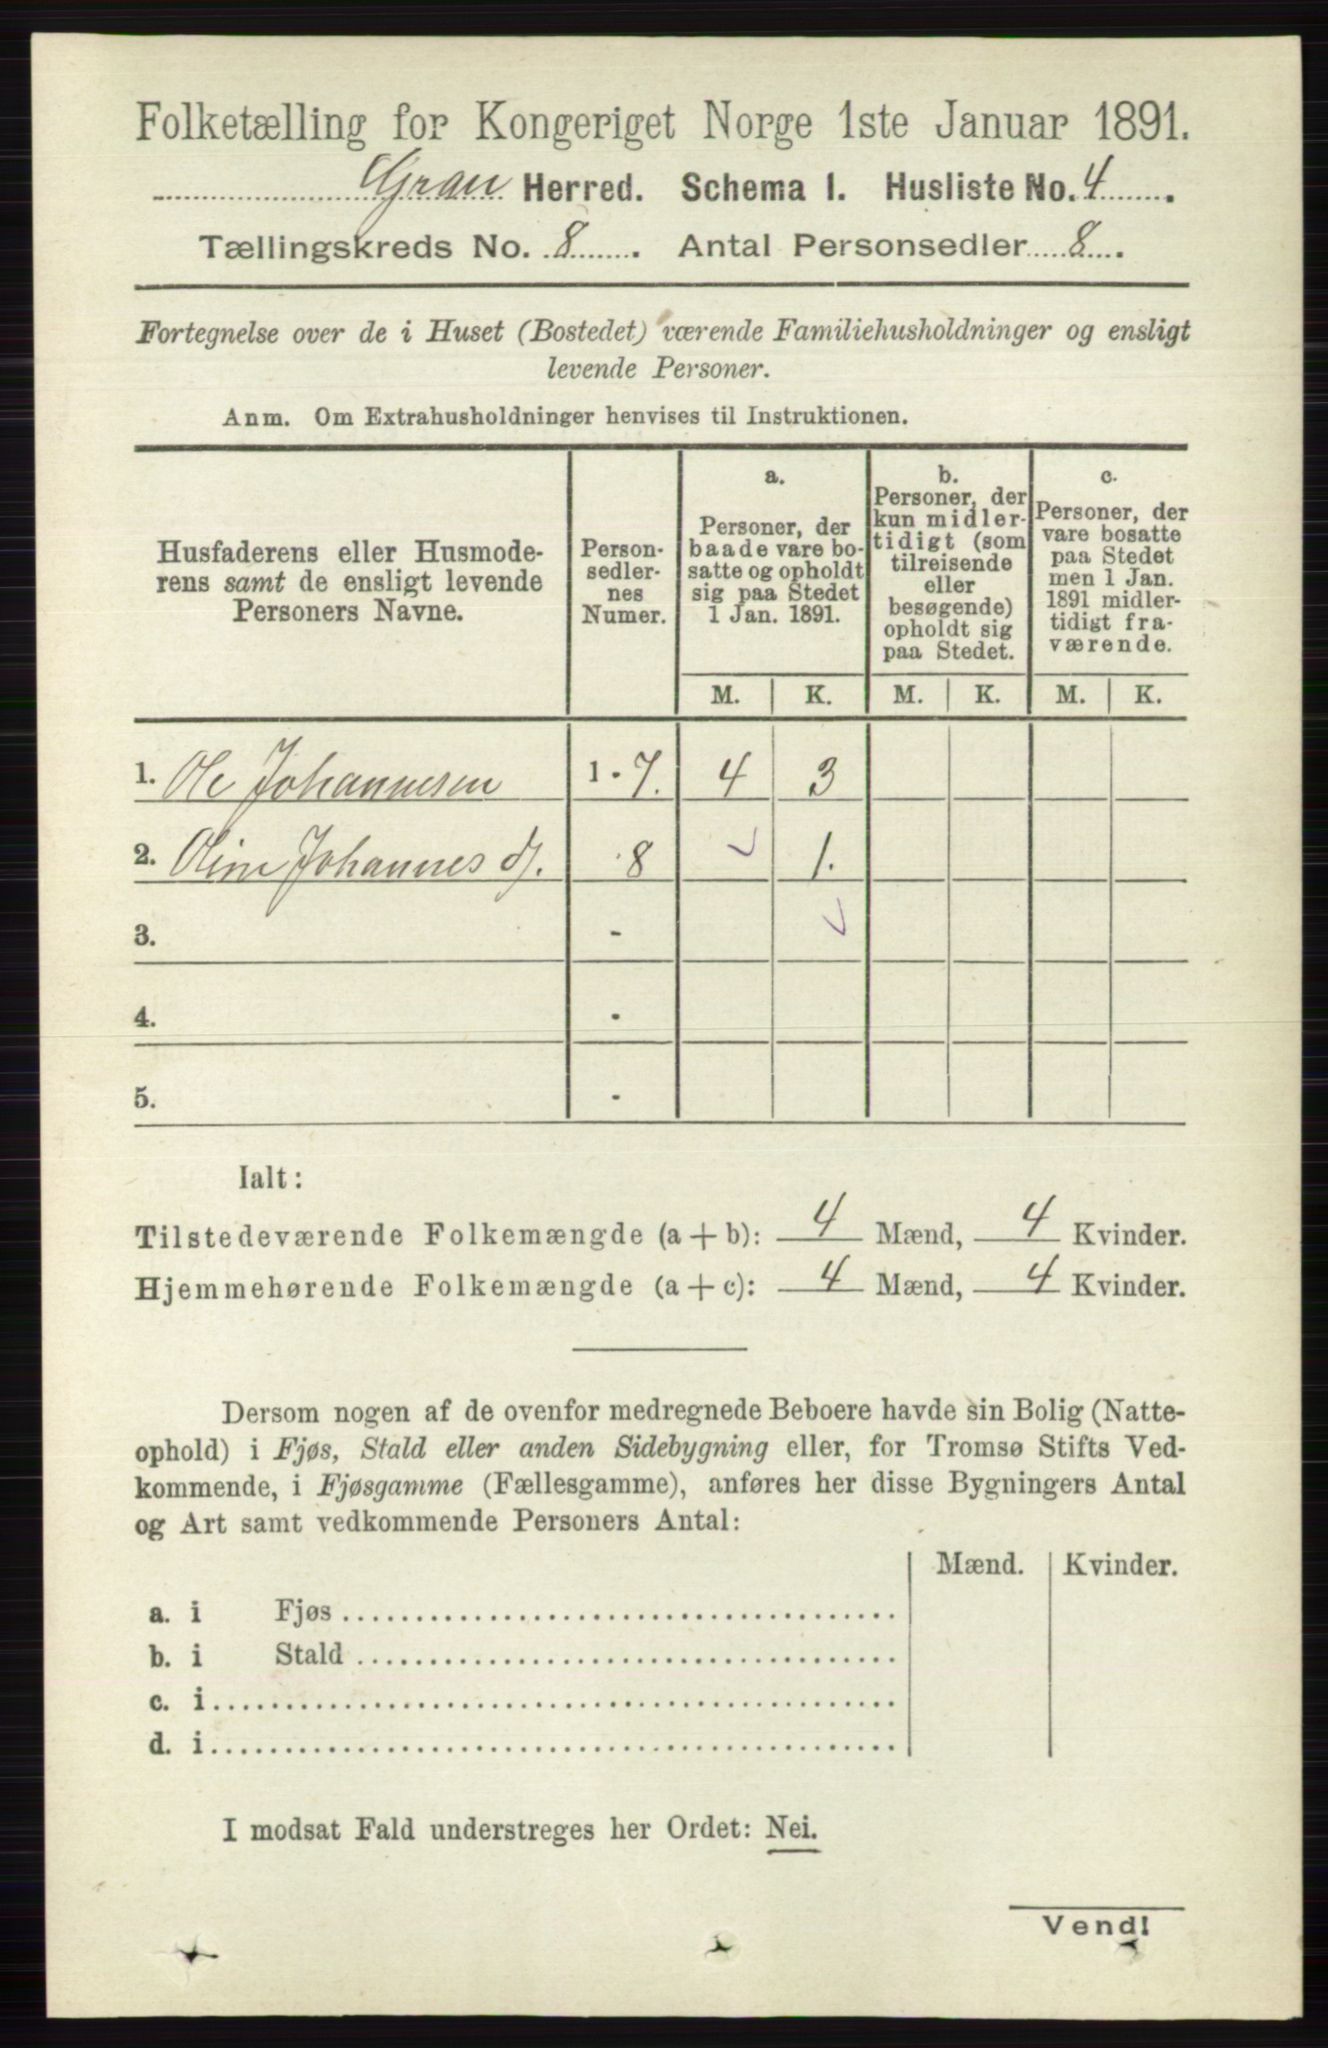 Folketælling for Kongeriget Norge 1ste Januar 1891.
Gran Herred. Schema 1. Husliste No. 4.
Tællingskreds No. 8. Antal Personsedler 8.
Fortegnelse over de i Huset (Bostedet) værende Familiehusholdninger og ensligt
levende Personer.
Anm. Om Extrahusholdninger henvises til Instruktionen.
Husfaderens eller Husmode-
rens samt de ensligt levende
Personers Navne.
Person-
sedler-
nes
Numer.
a.
Personer, der
baade vare bo-
satte og opholdt
sig paa Stedet
1 Jan. 1891.
b.
Personer, der
kun midler-
tidigt (som
tilreisende
eller
besøgende)
opholdt sig
paa Stedet.
c.
Personer, der
vare bosatte
paa Stedet
men 1 Jan.
1891 midler-
tidigt fra-
værende.
M. K. M. K. M. K.
1. Ole Johannesen 1 - 7. 4 3
2. Oline Johannes d/. 8 1.
3. -
4. -
5. -
Ialt:
Tilstedeværende Folkemængde (a + b): 4 Mænd, 4 Kvinder.
Hjemmehørende Folkemængde (a + c): 4 Mænd, 4 Kvinder.
Dersom nogen af de ovenfor medregnede Beboere havde sin Bolig (Natte-
ophold) i Fjøs, Stald eller anden Sidebygning eller, for Tromsø Stifts Ved-
kommende, i Fjøsgamme (Fællesgamme), anføres her disse Bygningers Antal
og Art samt vedkommende Personers Antal:
Mænd. Kvinder.
a. i Fjøs
b. i Stald
c. i
d. i
I modsat Fald understreges her Ordet: Nei.
Vend!